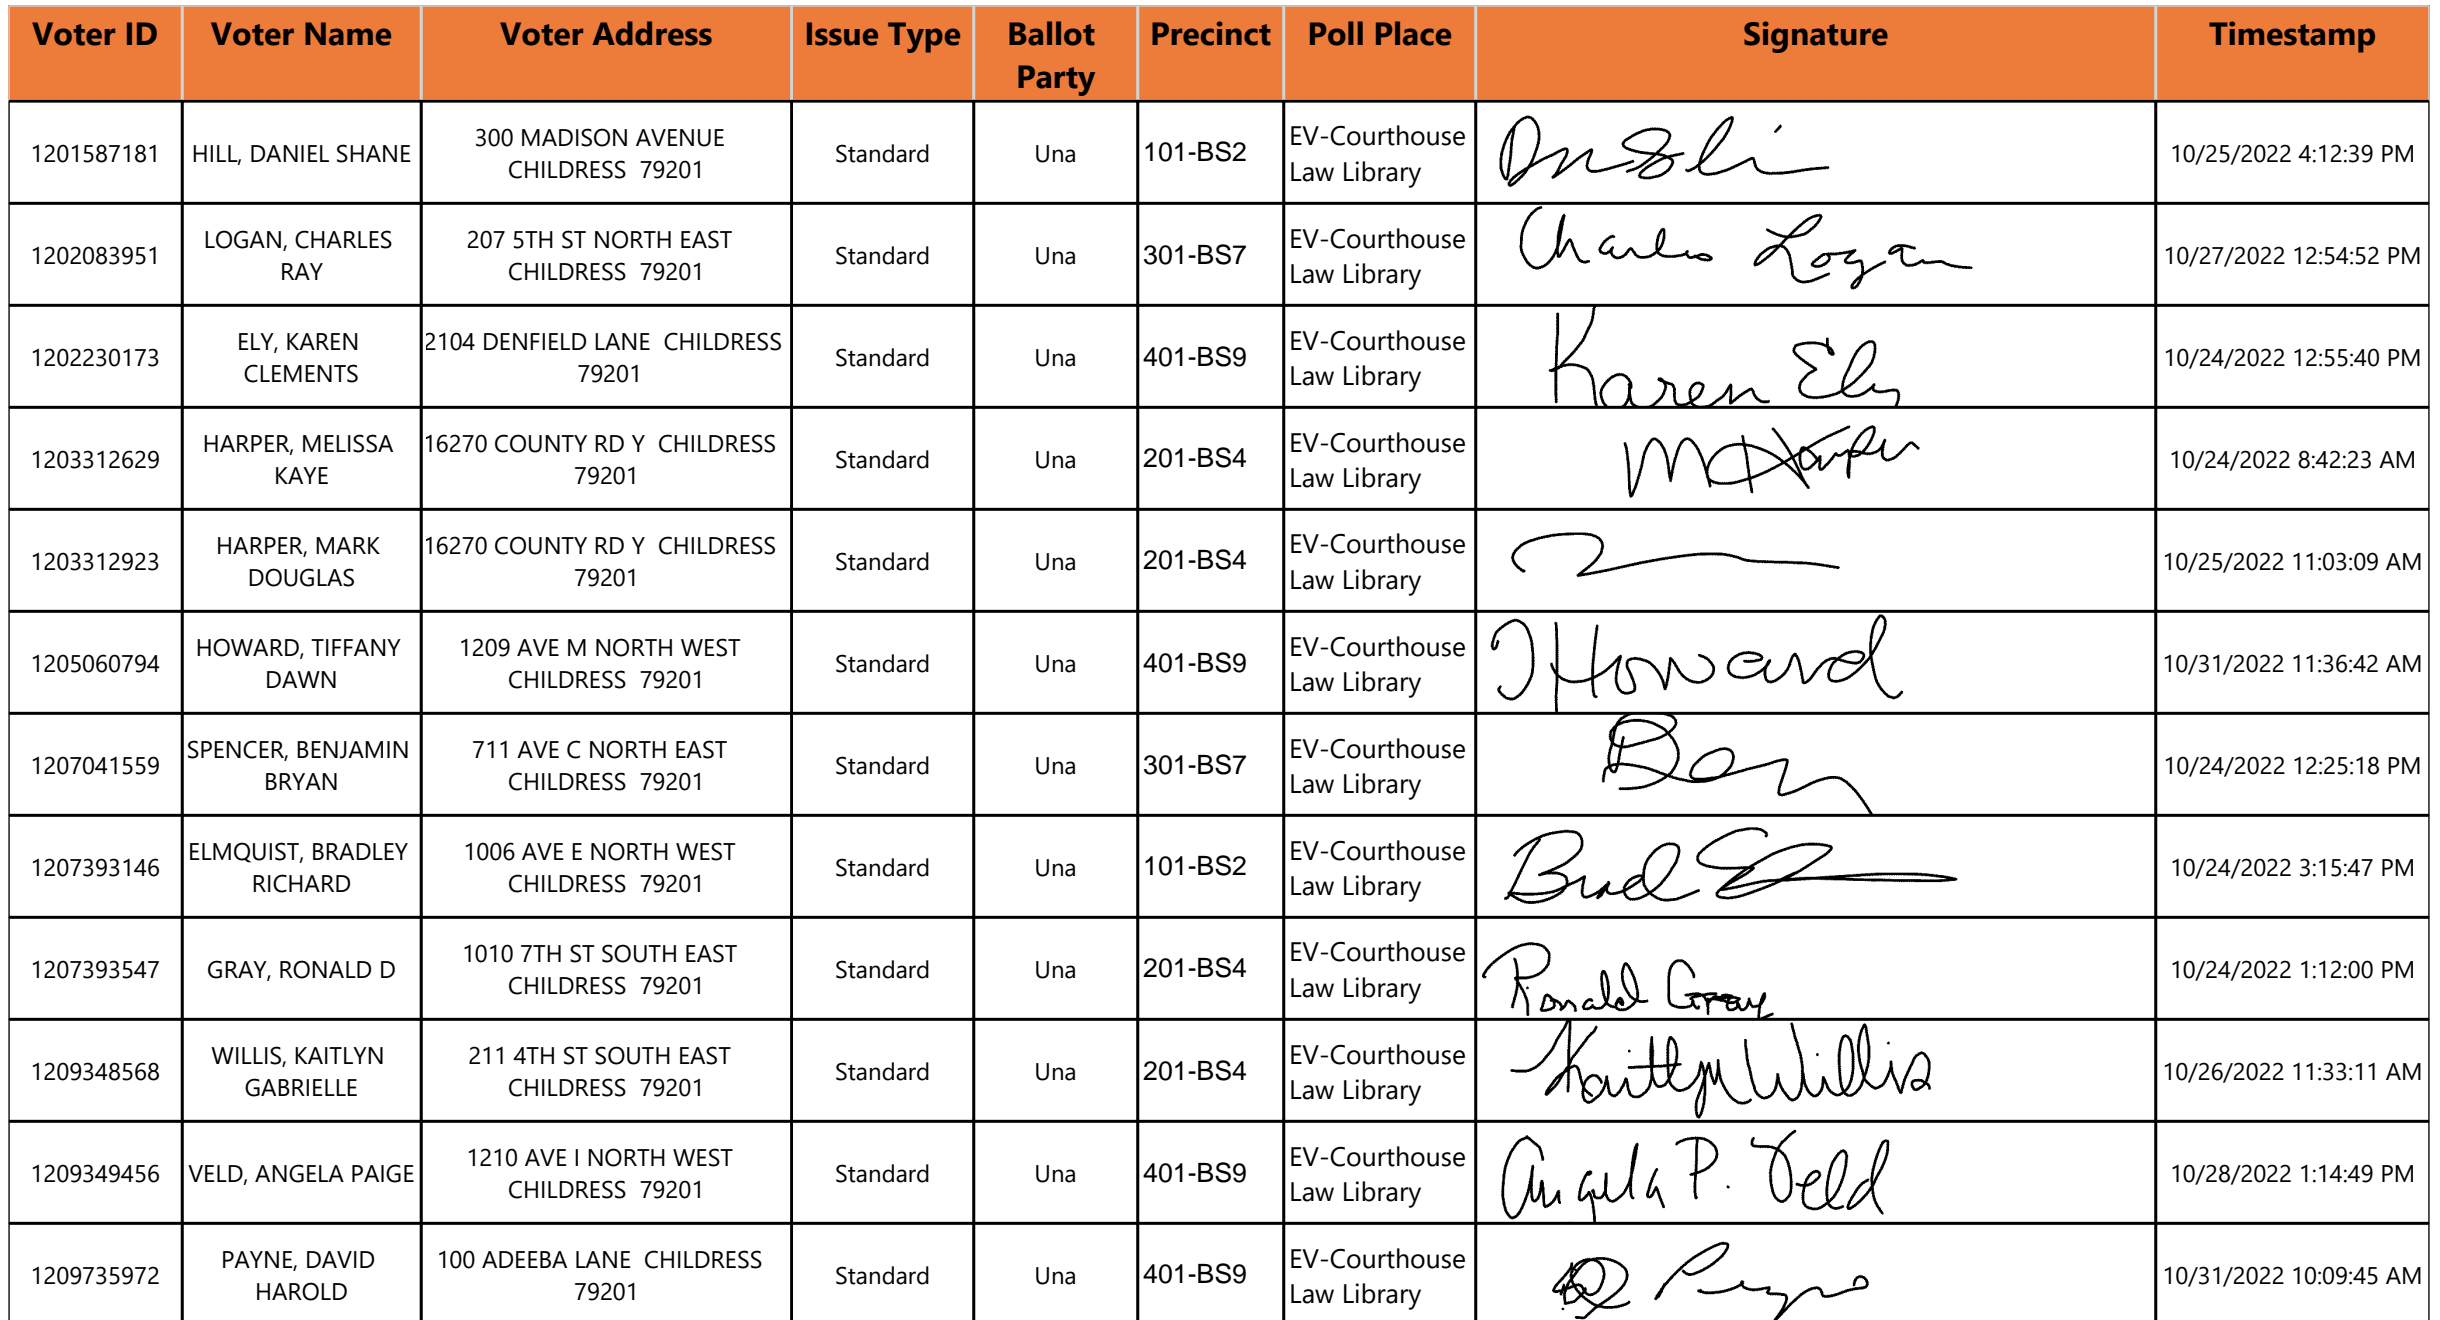 Voter ID Voter Name Voter Address Issue Type Ballot Party Precinct Poll Place Signature Timestamp
1201587181 HILL, DANIEL SHANE 300 MADISON AVENUE CHILDRESS 79201 Standard Una 101-BS2 EV-Courthouse Law Library 10/25/2022 4:12:39 PM
1202083951 LOGAN, CHARLES RAY 207 5TH ST NORTH EAST CHILDRESS 79201 Standard Una 301-BS7 EV-Courthouse Law Library Charles Logan 10/27/2022 12:54:52 PM
1202230173 ELY, KAREN CLEMENTS 2104 DENFIELD LANE CHILDRESS 79201 Standard Una 401-BS9 EV-Courthouse Law Library Karen Ely 10/24/2022 12:55:40 PM
1203312629 HARPER, MELISSA KAYE 16270 COUNTY RD Y CHILDRESS 79201 Standard Una 201-BS4 EV-Courthouse Law Library M Harper 10/24/2022 8:42:23 AM
1203312923 HARPER, MARK DOUGLAS 16270 COUNTY RD Y CHILDRESS 79201 Standard Una 201-BS4 EV-Courthouse Law Library 10/25/2022 11:03:09 AM
1205060794 HOWARD, TIFFANY DAWN 1209 AVE M NORTH WEST CHILDRESS 79201 Standard Una 401-BS9 EV-Courthouse Law Library T Howard 10/31/2022 11:36:42 AM
1207041559 SPENCER, BENJAMIN BRYAN 711 AVE C NORTH EAST CHILDRESS 79201 Standard Una 301-BS7 EV-Courthouse Law Library Ben 10/24/2022 12:25:18 PM
1207393146 ELMQUIST, BRADLEY RICHARD 1006 AVE E NORTH WEST CHILDRESS 79201 Standard Una 101-BS2 EV-Courthouse Law Library Brad 10/24/2022 3:15:47 PM
1207393547 GRAY, RONALD D 1010 7TH ST SOUTH EAST CHILDRESS 79201 Standard Una 201-BS4 EV-Courthouse Law Library Ronald Gray 10/24/2022 1:12:00 PM
1209348568 WILLIS, KAITLYN GABRIELLE 211 4TH ST SOUTH EAST CHILDRESS 79201 Standard Una 201-BS4 EV-Courthouse Law Library Kaitlyn Willis 10/26/2022 11:33:11 AM
1209349456 VELD, ANGELA PAIGE 1210 AVE I NORTH WEST CHILDRESS 79201 Standard Una 401-BS9 EV-Courthouse Law Library Angela P. Veld 10/28/2022 1:14:49 PM
1209735972 PAYNE, DAVID HAROLD 100 ADEEBA LANE CHILDRESS 79201 Standard Una 401-BS9 EV-Courthouse Law Library 10/31/2022 10:09:45 AM